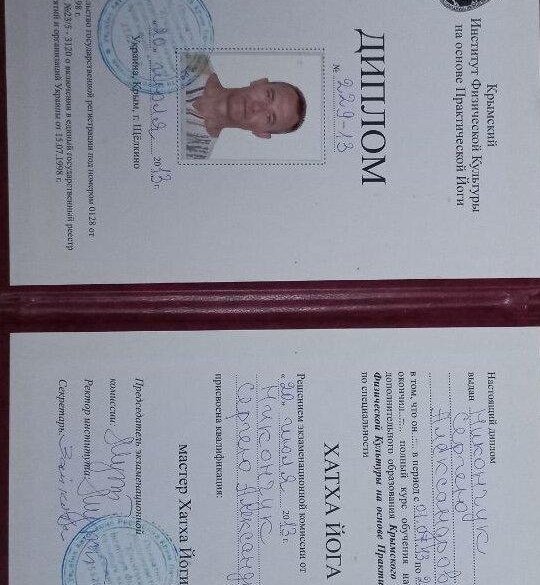 Крымский
Институт Физической Культуры
на основе Практической Йоги
ДИПЛОМ
№ 229-13
«20» июля 2013г.
Украина, Крым, г. Щёлкино
государственной регистрации под номером 0128 от
№23/5 - 3120 о включении в единый государственный реестр
и организаций Украины от 15.07.1998 г.
Настоящий диплом
выдан Никончук
Сергею
в том, что он в период с
окончил полный курс обучения на
дополнительного образования Крымского
Физической Культуры на основе
по специальности:
ХАТХА ЙОГА
Решением экзаменационной комиссии от
«20» июля 2013г.
Никончук
Сергею
присвоена квалификация:
мастер Хатха Йоги
Председатель экзаменационной
комиссии
Ректор института
Секретарь